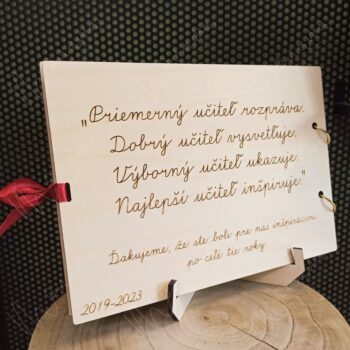 „Priemerný učiteľ rozpráva.
Dobrý učiteľ vysvetľuje.
Výborný učiteľ ukazuje.
Najlepší učiteľ inšpiruje."
Ďakujeme, že ste boli pre nás inšpiráciou
po celé tie roky
2019-2023